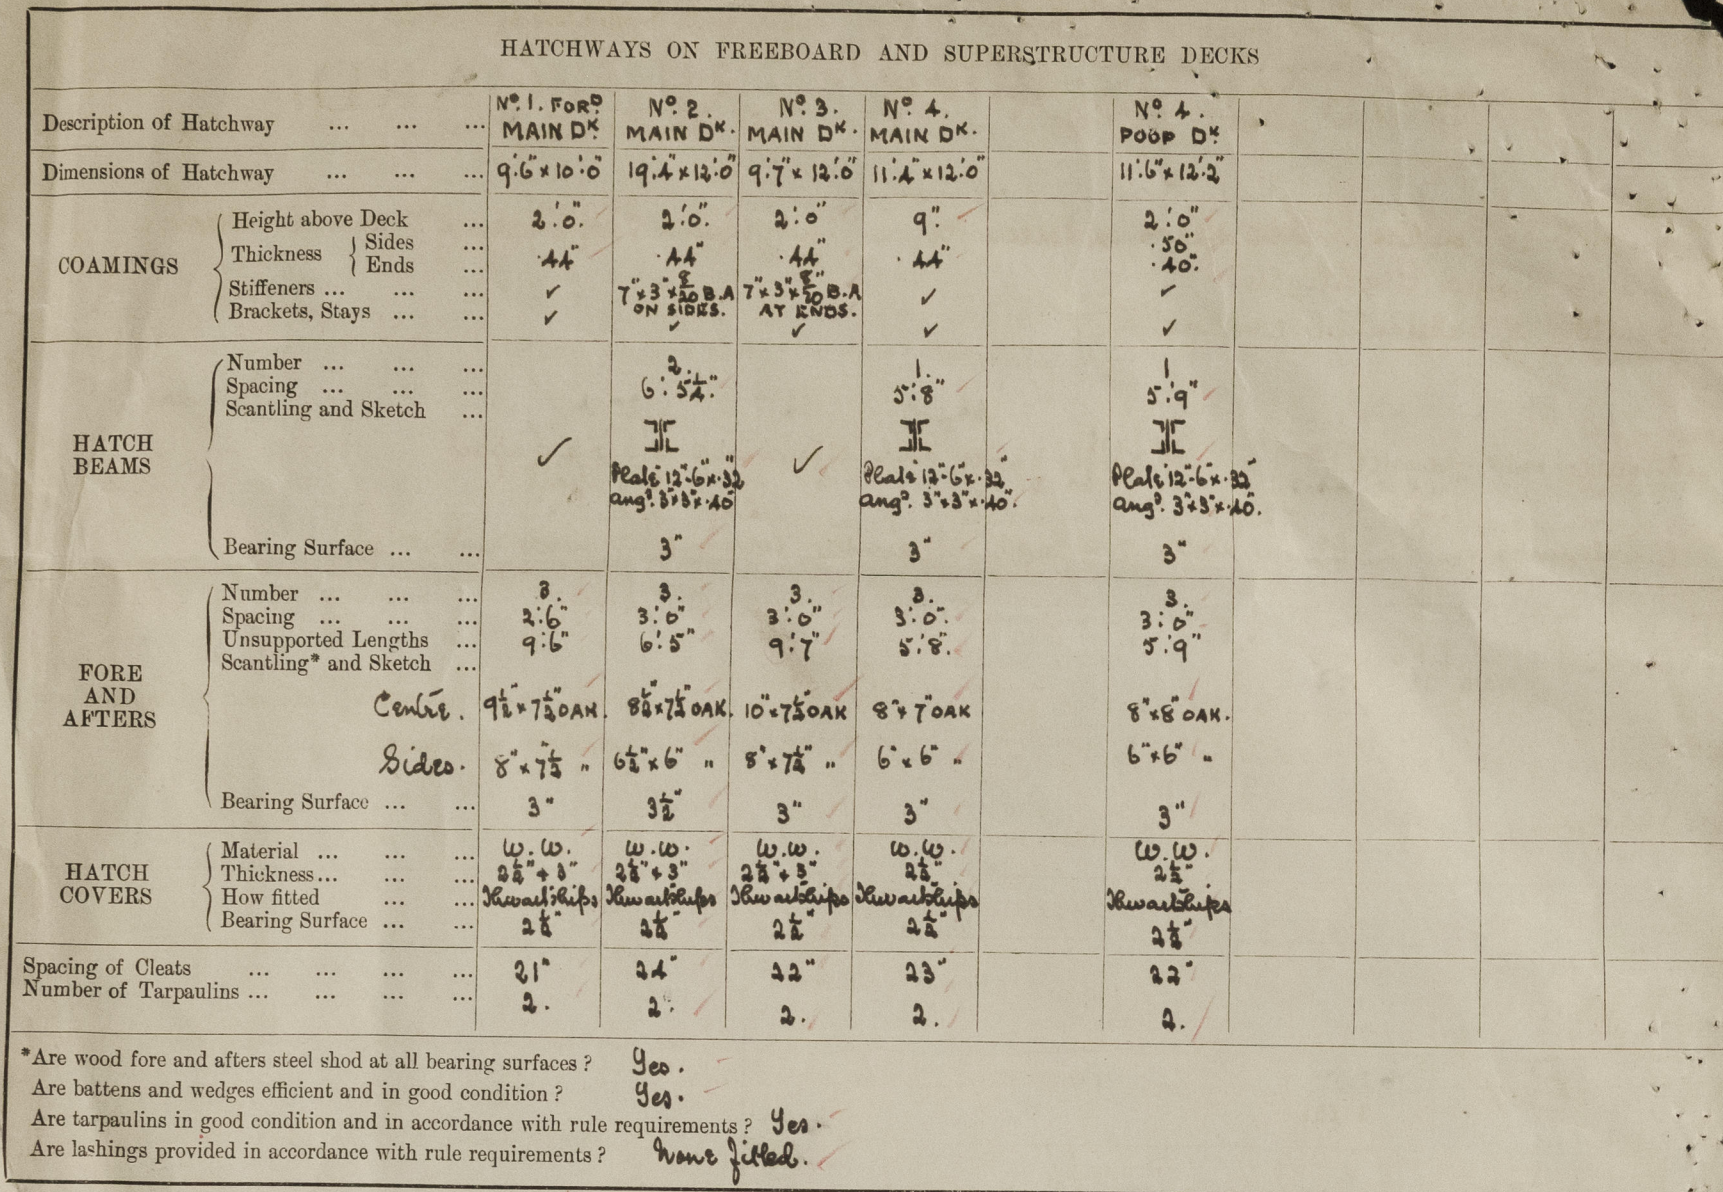 HATCHWAYS ON FREEBOARD AND SUPERSTRUCTURE DECKS
Description of Hatchway ... ... ... Nº. 1. FORD. MAIN DK. Nº. 2. MAIN DK. Nº. 3. MAIN DK. Nº. 4. MAIN DK. Nº. 4. POOP DK.
Dimensions of Hatchway ... ... ... 9':6" x 10':0" 19':4" x 12':0" 9':7" x 12':0" 11':4" x 12':0" 11':6" x 12':2"
COAMINGS
Height above Deck ... 2':0". 2':0". 2':0" 9". 2':0"
Thickness Sides ... .44" .44" .44" .44" .50"
Ends ... .40".
Stiffeners ... ... ... ✓ 7" x 3" x 8/20 B.A ON SIDES. 7" x 3" x 8/20" B.A AT ENDS. ✓ ✓
Brackets, Stays ... ... ✓ ✓ ✓ ✓ ✓
HATCH BEAMS
Number ... ... ... 2. 1. 1
Spacing ... ... ... 6':5¼" 5':8" 5':9"
Scantling and Sketch ... ✓ ✓
Plate 12"-6" x .32 Plate 12"-6" x .32" Plate 12"-6" x .32"
angs. 3" x 3" x .40" angs. 3" x 3" x .40". angs. 3" x 3" x .40".
Bearing Surface ... ... 3" 3" 3"
FORE AND AFTERS
Number ... ... ... 3. 3. 3. 3. 3.
Spacing ... ... ... 2':6" 3':0" 3':0" 3':0". 3':0"
Unsupported Lengths ... 9':6" 6':5" 9':7" 5':8". 5':9"
Scantling* and Sketch ...
Centre. 9½" x 7½" OAK. 8½" x 7½" OAK. 10" x 7½" OAK 8" x 7" OAK 8" x 8" OAK.
Sides. 8" x 7½" " 6½" x 6" " 8" x 7½" " 6" x 6" " 6" x 6" "
Bearing Surface ... ... 3" 3½" 3" 3" 3"
HATCH COVERS
Material ... ... ... W.W. W.W. W.W. W.W. W.W.
Thickness ... ... ... 2½" + 3" 2½" + 3" 2½" + 3" 2½" 2½"
How fitted ... ... Thwartships Thwartships Thwartships Thwartships Thwartships
Bearing Surface ... ... 2½" 2½" 2½" 2½" 2½"
Spacing of Cleats ... ... ... ... 21" 24" 22" 23" 22"
Number of Tarpaulins ... ... ... ... 2. 2. 2. 2. 2.
*Are wood fore and afters steel shod at all bearing surfaces ? Yes.
Are battens and wedges efficient and in good condition ? Yes.
Are tarpaulins in good condition and in accordance with rule requirements ? Yes.
Are lashings provided in accordance with rule requirements ? None fitted.